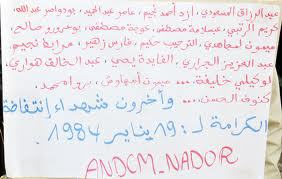 عبد الرزاق السعودي، أزد أحمد نجيم، عامر عبد الحميد، بودواسر عبد الله،
كريم الرتبي، عيسلامة مصطفى، خوية مصطفى، بوعرورو صالح،
ميمون مجاهدي، الترحيب حليم، فارس زهير، مرابط نجيم،
عبد العزيز الجراري، القايدة يحيى، عبد الخالق الهواري،
لوكيلي خليفة... ميمون أمهاوش، محمد
كنوف الحسن... وآخرون شهداء إنتفاضة
الكرامة لـ: 19 يناير 1984.
ANDCM_NADOR